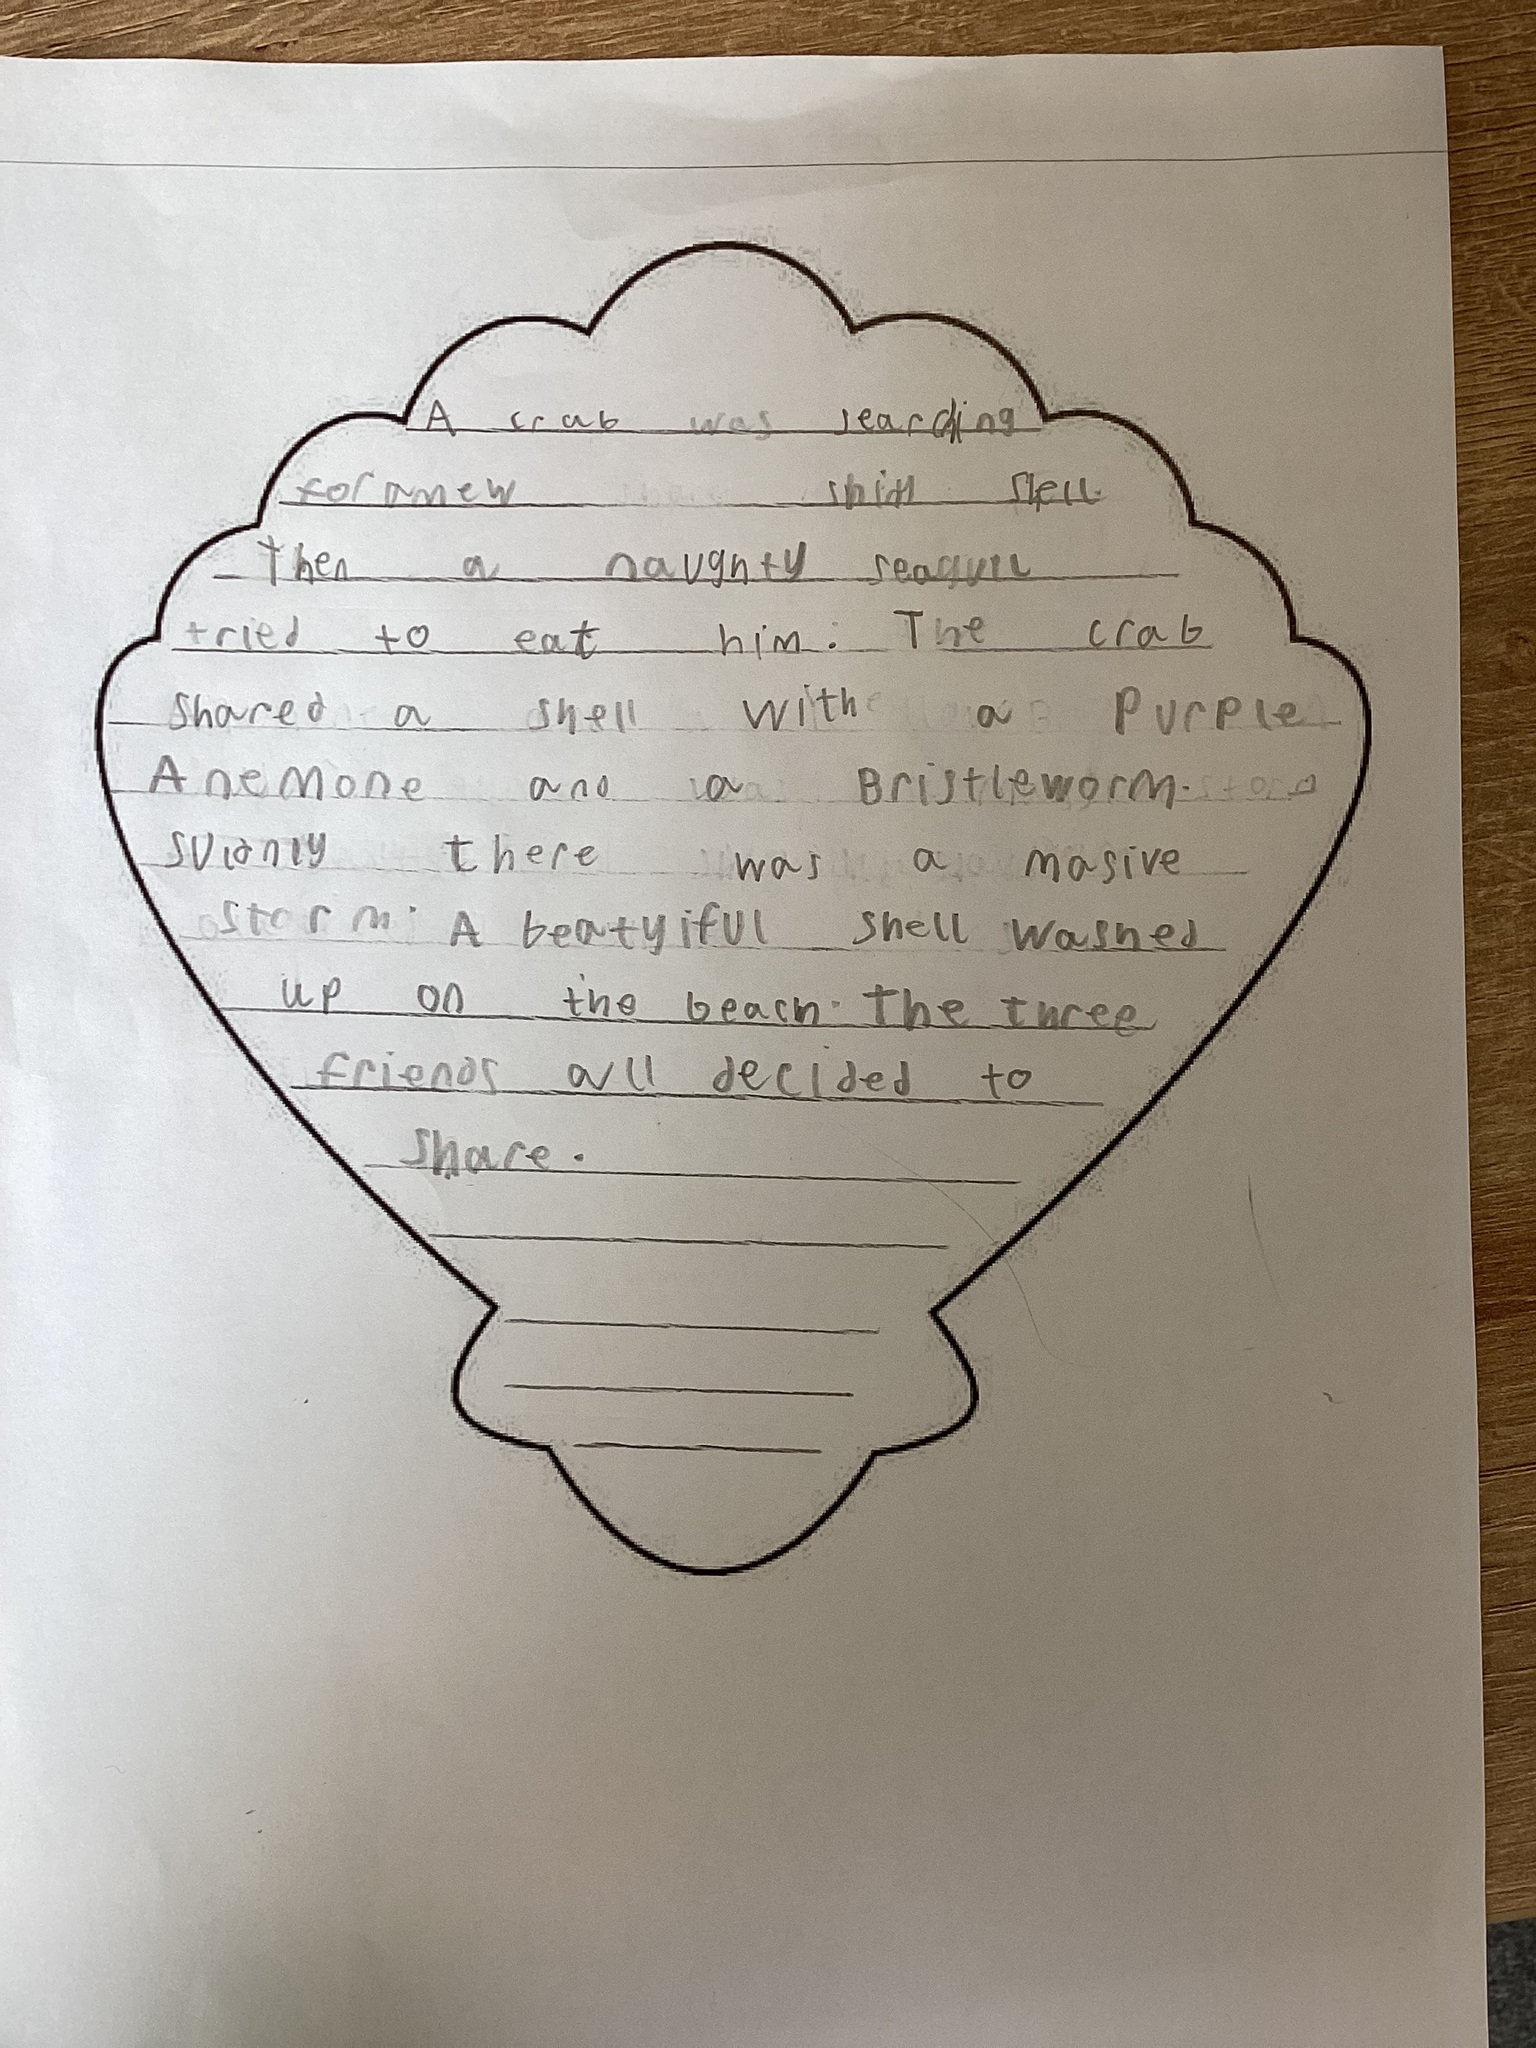 A crab was searching
for a new shell.
Then a naughty seagull
tried to eat him. The crab
shared a shell with a Purple
AneMone and a Bristleworm.
there was a masive
storm. A beatyiful shell washed
up on the beach. The three
friends all decided to
share.